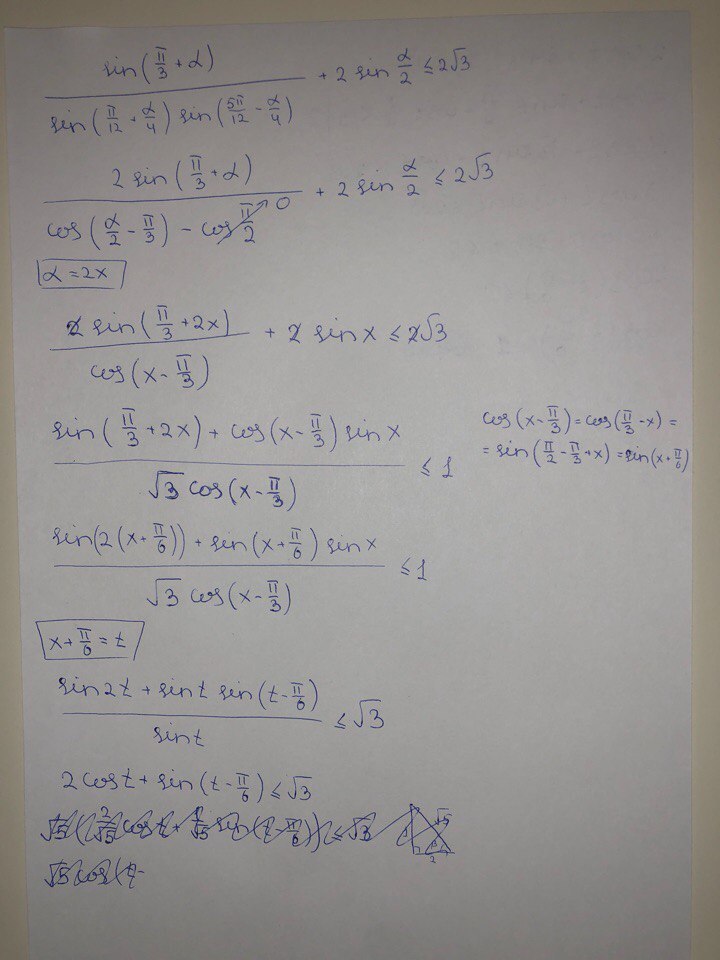 sin(π/3 + α) / (sin(π/12 + α/4) sin(5π/12 - α/4)) + 2 sin α/2 ≤ 2√3
2 sin(π/3 + α) / (cos(α/2 - π/3) - cos π/2) + 2 sin α/2 ≤ 2√3
0
α = 2x
2 sin(π/3 + 2x) / cos(x - π/3) + 2 sin x ≤ 2√3
(sin(π/3 + 2x) + cos(x - π/3) sin x) / (√3 cos(x - π/3)) ≤ 1
cos(x - π/3) = cos(π/3 - x) =
= sin(π/2 - π/3 + x) = sin(x + π/6)
(sin(2(x + π/6)) + sin(x + π/6) sin x) / (√3 cos(x - π/3)) ≤ 1
x + π/6 = t
(sin 2t + sin t sin(t - π/6)) / sin t ≤ √3
2 cos t + sin(t - π/6) ≤ √3
√5(2/√5 cos t + 1/√5 sin(t - π/6)) ≤ √3
√5 cos(t -